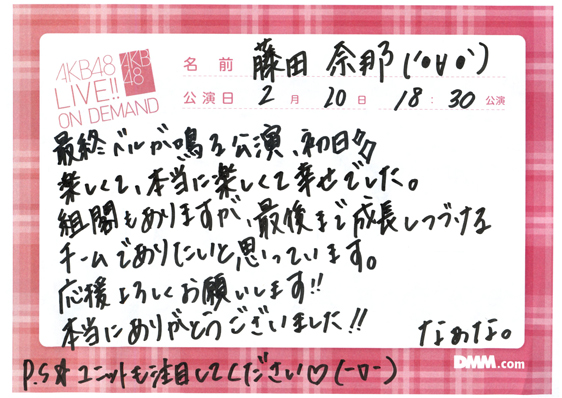 AKB48
LIVE!!
ON DEMAND
AKB
48
名前 藤田 奈那 (˚o∀o˚)
公演日 2月20日 18:30 公演
最終ベルが鳴る公演、初日
楽しくて、本当に楽しくて幸せでした。
組閣もありますが、最後まで成長しつづける
チームでありたいと思っています。
応援よろしくお願いします!!
本当にありがとうございました!!
なぁな。
DMM.com
P.S☆ユニットも注目してください♡(ーロー)